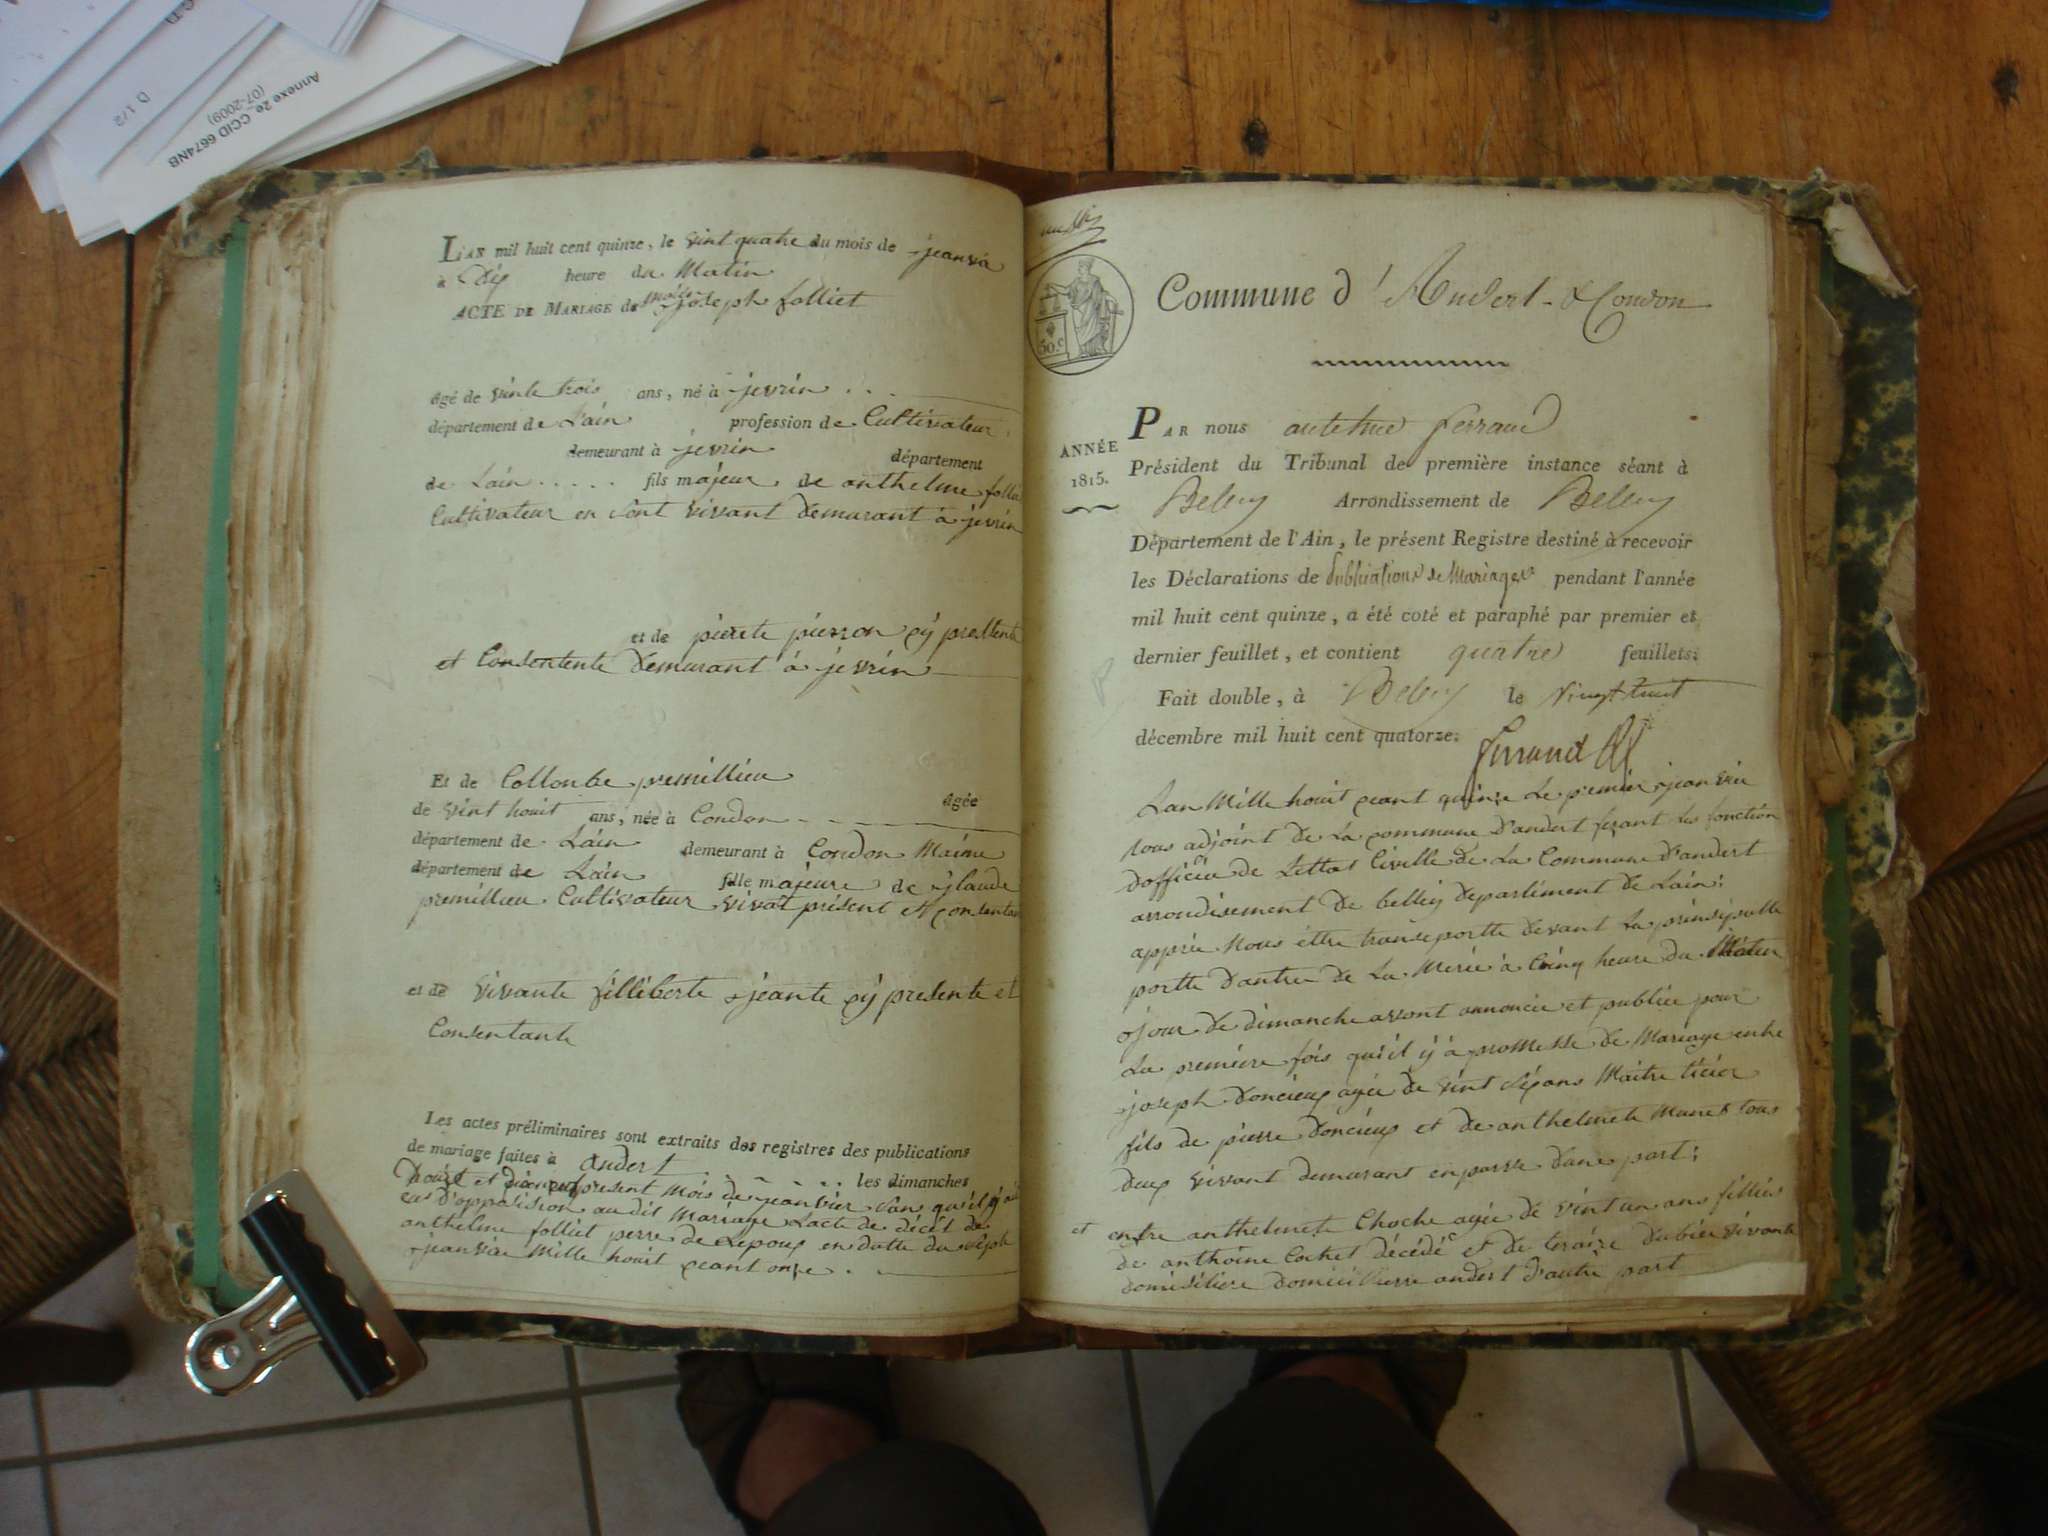 Annexe 2e_CCID 6674NB
(07-2009)
D 1/2
L'AN mil huit cent quinze, le vint quatre du mois de jeanvié
à Dix heure du Matin
ACTE DE MARIAGE de joseph folliet
âgé de vinte trois ans, né à jevrin
département de Lain profession de Cultivateur
demeurant à jevrin département
de Lain fils majeur de anthelme folliet
Cultivateur en sont vivant demurant à jevrin
et de pierete pierron cy presente
et Consentente demurant à jevrin
Et de Collombe premillieu âgée
de vint houit ans, née à Condon
département de Lain demeurant à Condon Maime
département de Lain fille majeure de glaude
premillieu Cultivateur vivat présent et consentant
et de vivante filliberte jeante cy presente et
Consentante
Les actes préliminaires sont extraits des registres des publications
de mariage faites à andert les dimanches
houit et dix neuf present mois de jeanvier san qu'il y ai
eut d'opposision audit Mariage Lacte de décét de
anthelme folliet perre de Lepoux en datte du
jeanvié Mille houit ceant onze
Commune d'Andert-&Condon
50. c
ANNÉE
1815.
PAR nous antelme ferrand
Président du Tribunal de première instance séant à
Belley Arrondissement de Belley
Département de l'Ain, le présent Registre destiné à recevoir
les Déclarations de Publications de Mariages pendant l'année
mil huit cent quinze, a été coté et paraphé par premier et
dernier feuillet, et contient quatre feuillets.
Fait double, à Belley le Vingt huit
décembre mil huit cent quatorze.
ferrand
Lan Mille houit ceant quinze Le premier jeanvier
Nous adjoint de La commune d'andert fesant les fonction
dofficié de Lettat Civille de La Commune d'andert
arrondisement de belley departement de Lain:
apprée Nous ettre transeportte devant La prinsipalle
portte d'antrée de La Merie à Cinq heure du Matin
jour de dimanche avont annoncée et publiée pour
La premiere fois qu'il y à promesse de Mariage entre
joseph doncieux agée de vint sis ans Maitre ticier
fils de pierre doncieux et de anthelmete Munet tous
deux vivant demurant en parsse dune part;
et entre anthelmete Choche agée de vint un ans filliée
de anthoine Cochet décédé et de dubier vivante
domicilliere andert d'autre part